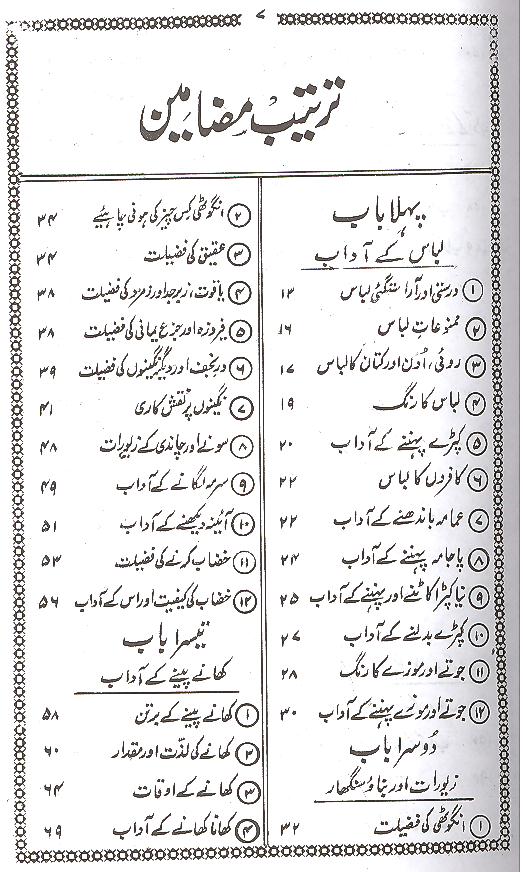 ۷
ترتیب مضامین
پہلا باب
لباس کے آداب
۱ درستی اور آراستگئی لباس ۱۳
۲ ممنوعات لباس ۱۶
۳ روئی، اُون اور کتان کا لباس ۱۷
۴ لباس کا رنگ ۱۹
۵ کپڑے پہننے کے آداب ۲۰
۶ کافروں کا لباس ۲۲
۷ عمامہ باندھنے کے آداب ۲۲
۸ پاجامہ پہننے کے آداب ۲۴
۹ نیا کپڑا کاٹنے اور پہننے کے آداب ۲۵
۱۰ کپڑے بدلنے کے آداب ۲۷
۱۱ جوتے اور موزے کا رنگ ۲۸
۱۲ جوتے اور موزے پہننے کے آداب ۳۰
دُوسرا باب
زیورات اور بناؤ سنگھار
۱ انگوٹھی کی فضیلت ۳۲
۲ انگوٹھی کس چیز کی ہونی چاہیئے ۳۴
۳ عقیق کی فضیلت ۳۴
۴ یاقوت، زبرجد اور زمرد کی فضیلت ۳۸
۵ فیروزہ اور جزع یمانی کی فضیلت ۳۸
۶ درِ نجف اور دیگر نگینوں کی فضیلت ۳۹
۷ نگینوں پر نقش کاری ۴۱
۸ سونے اور چاندی کے زیورات ۴۸
۹ سرمہ لگانے کے آداب ۴۹
۱۰ آئینہ دیکھنے کے آداب ۵۱
۱۱ خضاب کرنے کی فضیلت ۵۳
۱۲ خضاب کی کیفیت اور اس کے آداب ۵۶
تیسرا باب
کھانے پینے کے آداب
۱ کھانے پینے کے برتن ۵۸
۲ کھانے کی لذّت اور مقدار ۶۰
۳ کھانے کے اوقات ۶۴
۴ کھانا کھانے کے آداب ۶۹